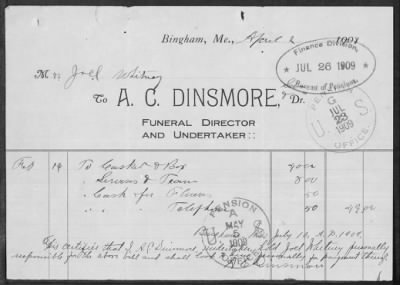 Bingham, Me., April 2 1909
Finance Division,
★ JUL 26 1909 ★
Bureau of Pensions.
M rs Joel Whitney
To A. C. DINSMORE, Dr.
FUNERAL DIRECTOR
AND UNDERTAKER::
PENSION
JUL
23
1909
U. S.
OFFICE
Feb 14 To Casket & Box
Services & Team 8 00
" Cash for Gloves 50
" " Telephone 50 49 00
PENSION
A
MAY
5
1909
U. S.
OFFICE
Me. July 10, A.D. 1909.
This certifies that I A C Dinsmore, undertaker, hold Joel Whitney personally
responsible for the above bill and shall look to him personally for payment
A C Dinsmore